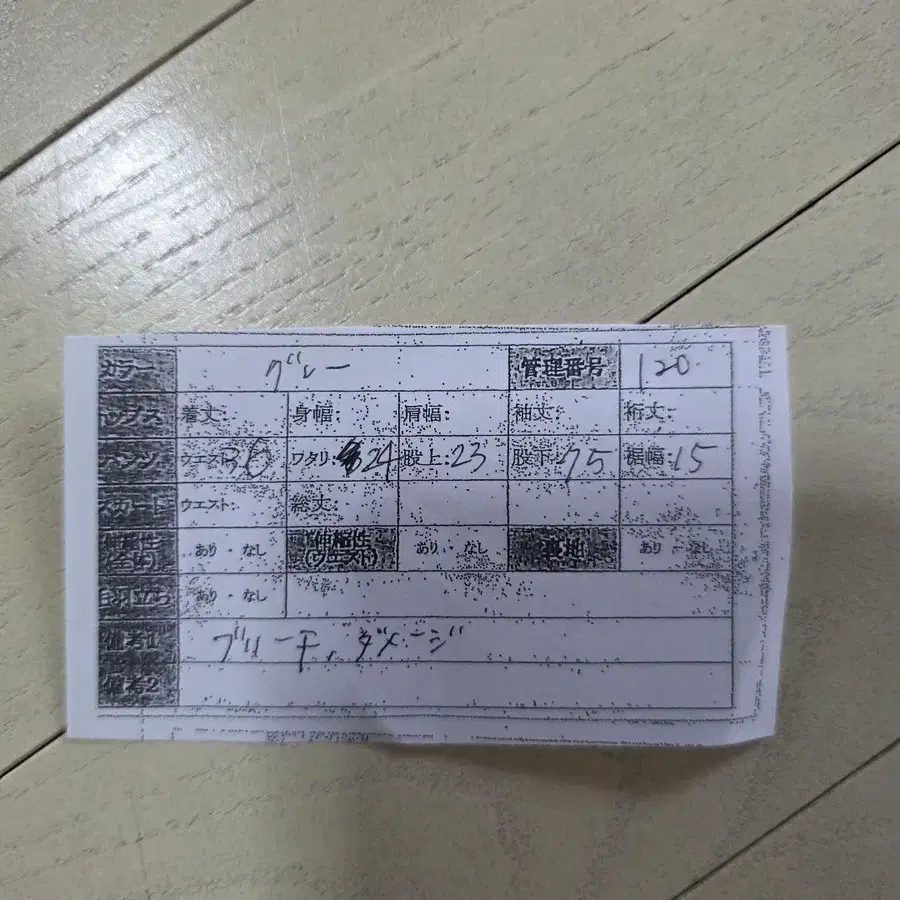 カラー グレー 管理番号 120
トップス 着丈: 身幅: 肩幅: 袖丈: 裄丈:
パンツ ウエスト: 36 ワタリ: 24 股上: 23 股下: 75 裾幅: 15
スカート ウエスト: 総丈:
伸縮性 あり・なし 伸縮性 (ウエスト) あり・なし 裏地 あり・なし
毛羽立ち あり・なし
備考1 ブリーチ、ダメージ
備考2